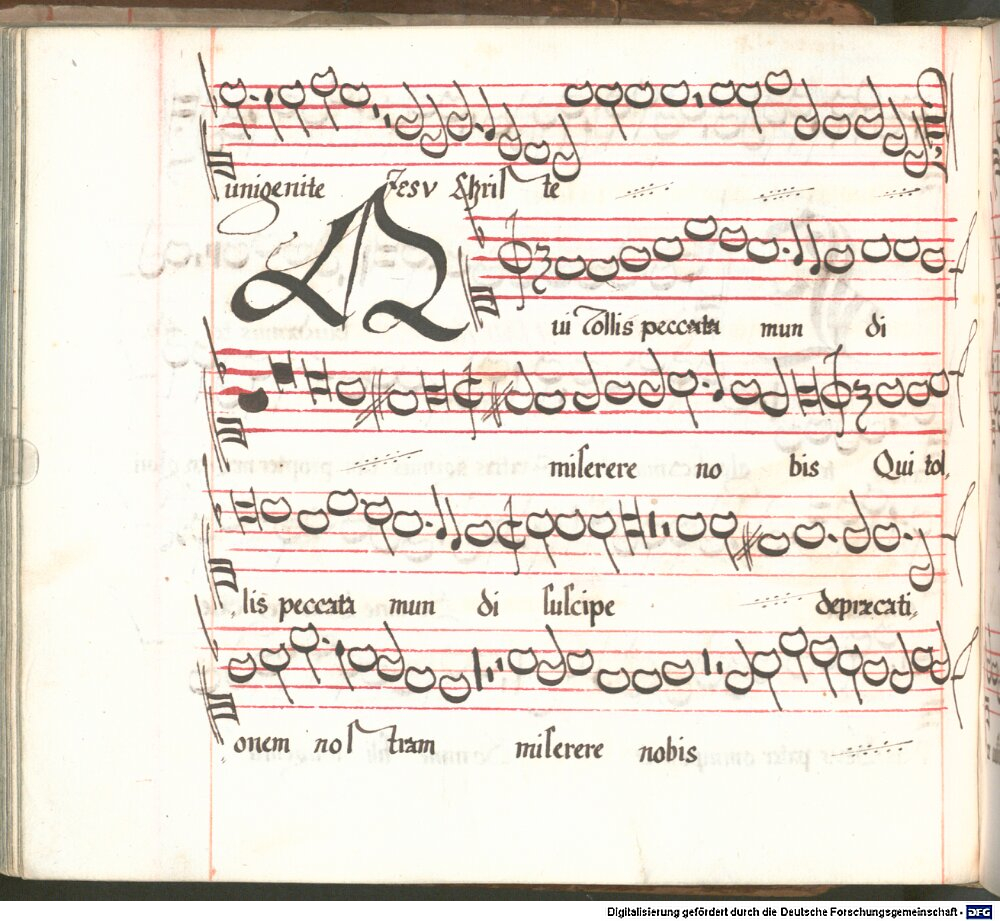 unigenite Jesu Christe
Qui tollis peccata mundi
miserere nobis Qui tol,
lis peccata mundi suscipe deprecati,
onem nostram miserere nobis
Digitalisierung gefördert durch die Deutsche Forschungsgemeinschaft - DFG